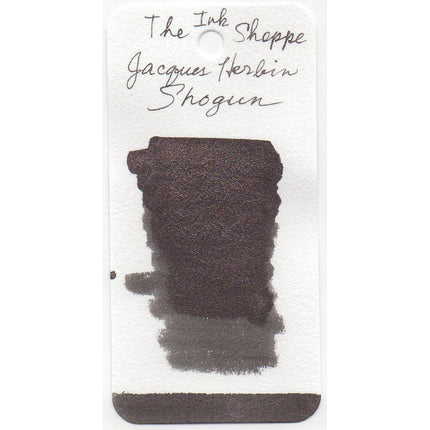 The Ink Shoppe
Jacques Herbin
Shogun